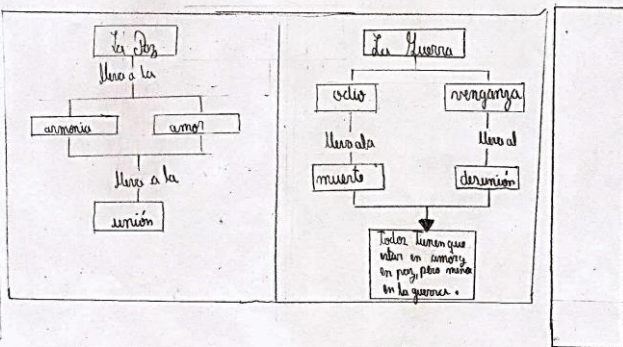 La Paz
lleva a la
armonia
amor
lleva a la
unión
La Guerra
odio
venganza
lleva ala
lleva al
muerte
desunión
Todos tienen que
estar en amor y
en paz, pero nunca
en la guerra.